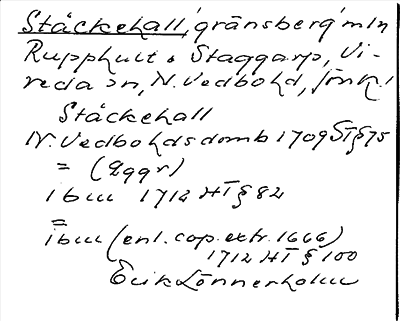 Ståckehall, 'gränsberg' mln
Rupphult o Staggarp, Vi-
reda sn, N. Vedbohd, Jönk. l
Ståckehall
N. Vedbohdsdomb 1709 ST § 75
= (Äggr)
ibm 1712 HT § 82
=
ibm (enl. cop. extr. 1666)
1712 HT § 100
Erik Lönnerholm